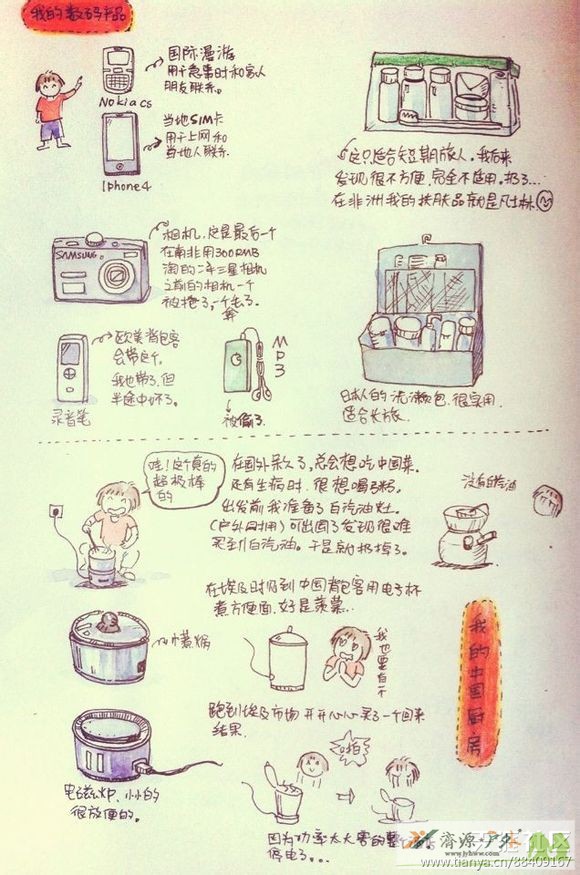 我的数码产品
国际漫游
用于急事时和家人
朋友联系。
Nokia C5
当地SIM卡
用于上网和
当地人联系.
Iphone4
这只适合短期旅人,我后来
发现很不方便,完全不适用,扔了…
在非洲我的扶肤品就是凡士林
相机,这是最后一个
在南非用300RMB
淘的二手三星相机
之前的相机一个
被抢了,一个丢了.
SAMSUNG
欧美背包客
会带这个,
我也带了,但
半途中坏了.
录音笔
MP3
被偷了
日本人的洗漱包,很实用.
适合长旅.
哇!这个真的
超级棒
的
在国外呆久了,总会想吃中国菜.
还有生病时,很想喝粥.
出发前我准备了白汽油灶.
(户外网拥)可出国了发现很难
买到白汽油.于是就扔掉了.
没有白汽油
在埃及时见到中国背包客用电子杯
煮方便面,好是羡慕…
小蒸锅
我也要自个
我的中国厨房
跑到埃及市场开开心心买了一个回来
结果.
啪
电磁炉,小小的
很放便的.
因为功率太大害的整
停电了。。。
www.jyhww.com
www.tianya.cn/88409167